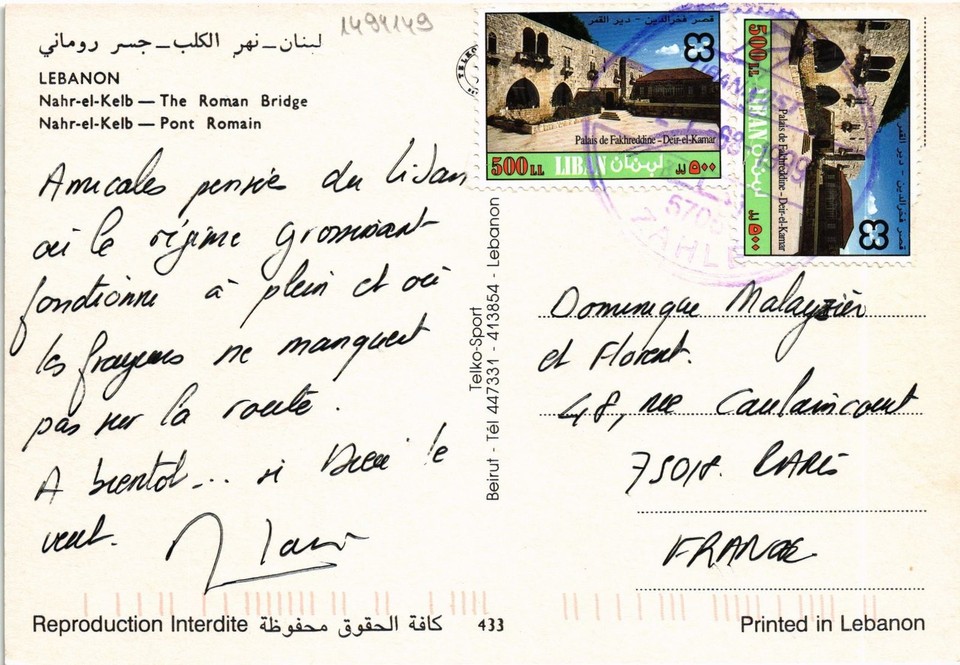 1494149
لبنان – نهر الكلب – جسر روماني
LEBANON
Nahr-el-Kelb — The Roman Bridge
Nahr-el-Kelb — Pont Romain
Amicales pensées du Liban
où le régime grossissant
fonctionne à plein et où
les frayeurs ne manquent
pas sur la route.
A bientôt... si Dieu le
veut.
Telko-Sport
Beirut - Tél 447331 - 413854 - Lebanon
قصر فخرالدين - دير القمر
Palais de Fakhreddine - Deir-el-Kamar
500LL LIBAN لبنان ٥٠٠ ل.ل
قصر فخرالدين - دير القمر
Palais de Fakhreddine - Deir-el-Kamar
500LL LIBAN لبنان ٥٠٠ ل.ل
ZAHLE
Dominique
et Florent.
48, rue Caulaincourt
75018. PARIS
FRANCE
Reproduction Interdite كافة الحقوق محفوظة 433
Printed in Lebanon